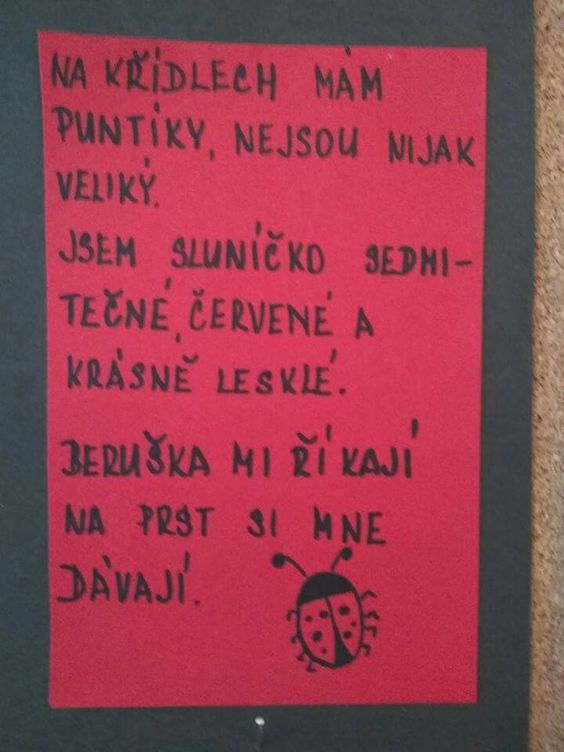 NA KŘÍDLECH MÁM
PUNTÍKY, NEJSOU NIJAK
VELIKÝ.
JSEM SLUNÍČKO SEDMI-
TEČNÉ, ČERVENÉ A
KRÁSNĚ LESKLÉ.
BERUŠKA MI ŘÍKAJÍ
NA PRST SI MNE
DÁVAJÍ.